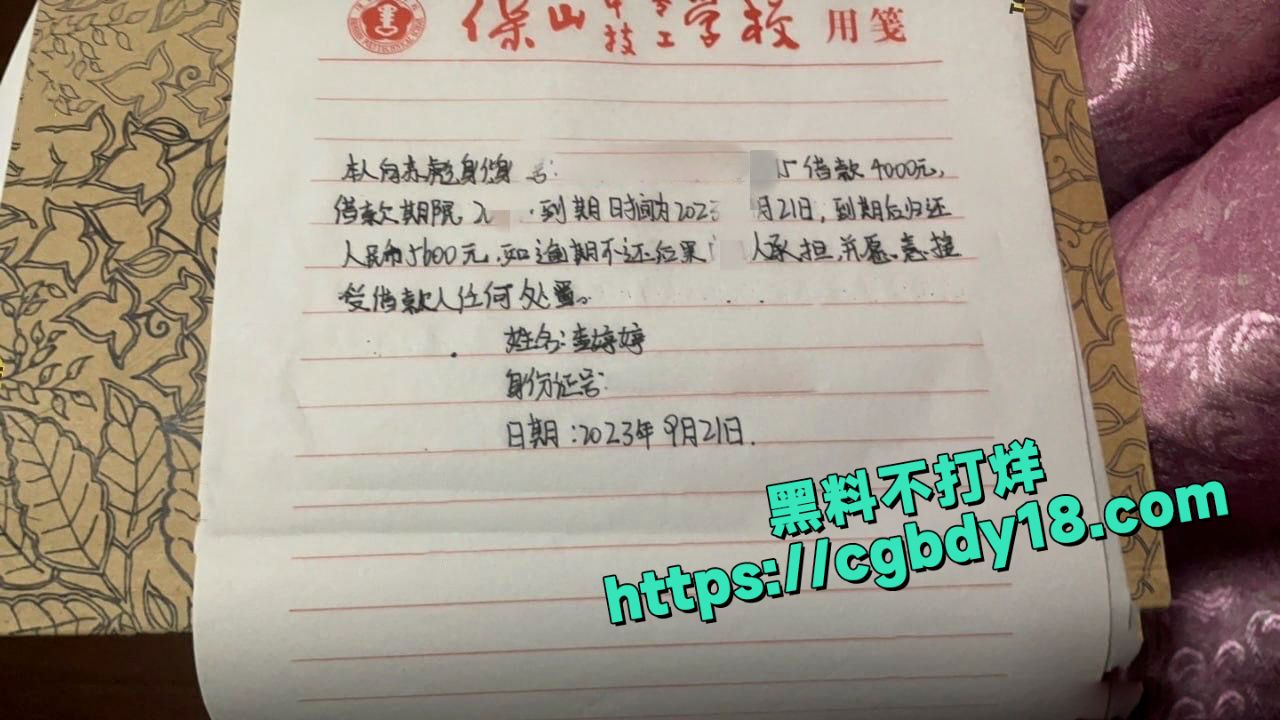 保山中等
技工学校用笺
本人向苏彪身份身 号: 15 借款4000元,
借款期限 2 . 到期日时间为2023 月21日, 到期后归还
人民币5600元, 如逾期不还后果 人承担, 并愿意接
受借款人任何处置。
姓名: 查婷婷
身份证号:
日期:2023年9月21日.
黑料不打烊
https://cgbdy18.com